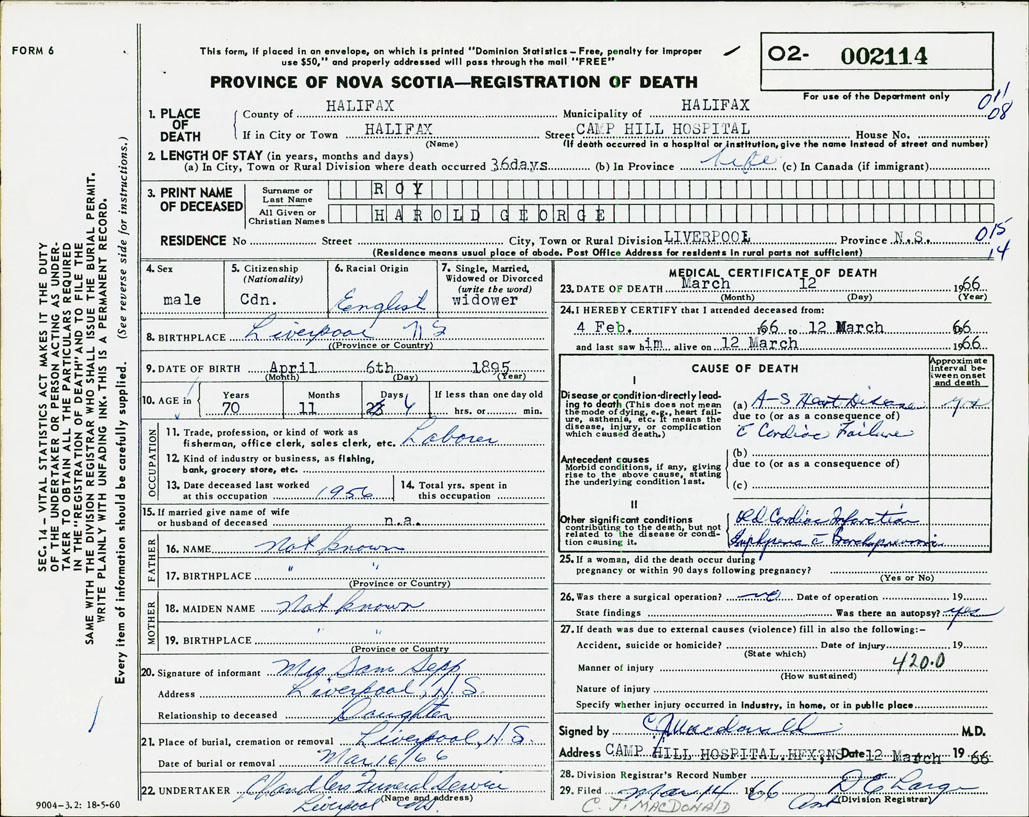 FORM 6
This form, if placed in an envelope, on which is printed "Dominion Statistics – Free, penalty for improper
use $50," and properly addressed will pass through the mail "FREE"
O2- 002114
For use of the Department only
PROVINCE OF NOVA SCOTIA—REGISTRATION OF DEATH
011
08
SEC. 14 – VITAL STATISTICS ACT MAKES IT THE DUTY
OF THE UNDERTAKER OR PERSON ACTING AS UNDER-
TAKER TO OBTAIN ALL THE PARTICULARS REQUIRED
IN THE "REGISTRATION OF DEATH" AND TO FILE THE
SAME WITH THE DIVISION REGISTRAR WHO SHALL ISSUE THE BURIAL PERMIT.
WRITE PLAINLY WITH UNFADING INK. THIS IS A PERMANENT RECORD.
Every item of information should be carefully supplied. (See reverse side for instructions.)
1. PLACE OF DEATH
County of HALIFAX Municipality of HALIFAX
If in City or Town HALIFAX Street CAMP HILL HOSPITAL House No.
(Name) (If death occurred in a hospital or institution, give the name instead of street and number)
2. LENGTH OF STAY (in years, months and days)
(a) In City, Town or Rural Division where death occurred 36days (b) In Province life (c) In Canada (if immigrant)
3. PRINT NAME OF DECEASED
Surname or Last Name ROY
All Given or Christian Names HAROLD GEORGE
RESIDENCE No Street City, Town or Rural Division LIVERPOOL Province N.S.
015
14
(Residence means usual place of abode. Post Office Address for residents in rural parts not sufficient)
4. Sex male
5. Citizenship (Nationality) Cdn.
6. Racial Origin English
7. Single, Married, Widowed or Divorced (write the word) widower
8. BIRTHPLACE Liverpool NS
(Province or Country)
9. DATE OF BIRTH April 6th 1895
(Month) (Day) (Year)
10. AGE in Years 70 Months 11 Days 4 If less than one day old hrs. or min.
OCCUPATION
11. Trade, profession, or kind of work as
fisherman, office clerk, sales clerk, etc. Laborer
12. Kind of industry or business, as fishing,
bank, grocery store, etc.
13. Date deceased last worked
at this occupation 1956
14. Total yrs. spent in
this occupation
15. If married give name of wife
or husband of deceased n.a.
FATHER
16. NAME Not known
17. BIRTHPLACE " "
(Province or Country)
MOTHER
18. MAIDEN NAME Not known
19. BIRTHPLACE " "
(Province or Country
20. Signature of informant Mrs Sam Sepp
Address Liverpool, N.S.
Relationship to deceased Daughter
21. Place of burial, cremation or removal Liverpool, N.S.
Date of burial or removal Mar 16/66
22. UNDERTAKER Chandlers Funeral Service
(Name and address)
Liverpool NS.
9004–3.2: 18-5-60
MEDICAL CERTIFICATE OF DEATH
23. DATE OF DEATH March 12 1966
(Month) (Day) (Year)
24. I HEREBY CERTIFY that I attended deceased from:
4 Feb. 66 to 12 March 66
and last saw him alive on 12 March 1966
CAUSE OF DEATH
Approximate interval between onset and death
I
Disease or condition directly lead-
ing to death (This does not mean
the mode of dying, e.g., heart fail-
ure, asthenia, etc. It means the
disease, injury, or complication
which caused death.)
(a) A-S Heart Disease yrs
due to (or as a consequence of)
c̄ Cardiac Failure
Antecedent causes
Morbid conditions, if any, giving
rise to the above cause, stating
the underlying condition last.
(b)
due to (or as a consequence of)
(c)
II
Other significant conditions
contributing to the death, but not
related to the disease or condi-
tion causing it.
Old Cardiac Infarction
Emphysema c̄ Bronchopneumonia
25. If a woman, did the death occur during
pregnancy or within 90 days following pregnancy?
(Yes or No)
26. Was there a surgical operation? no Date of operation 19
State findings Was there an autopsy? yes
27. If death was due to external causes (violence) fill in also the following:–
Accident, suicide or homicide? Date of injury 19
(State which)
Manner of injury 420.0
(How sustained)
Nature of injury
Specify whether injury occurred in industry, in home, or in public place
Signed by C J Macdonald M.D.
Address CAMP HILL HOSPITAL, HFX, NS Date 12 March 1966
28. Division Registrar's Record Number
29. Filed Mar 14 1966 D E Large
(Division Registrar)
C. J. MACDONALD